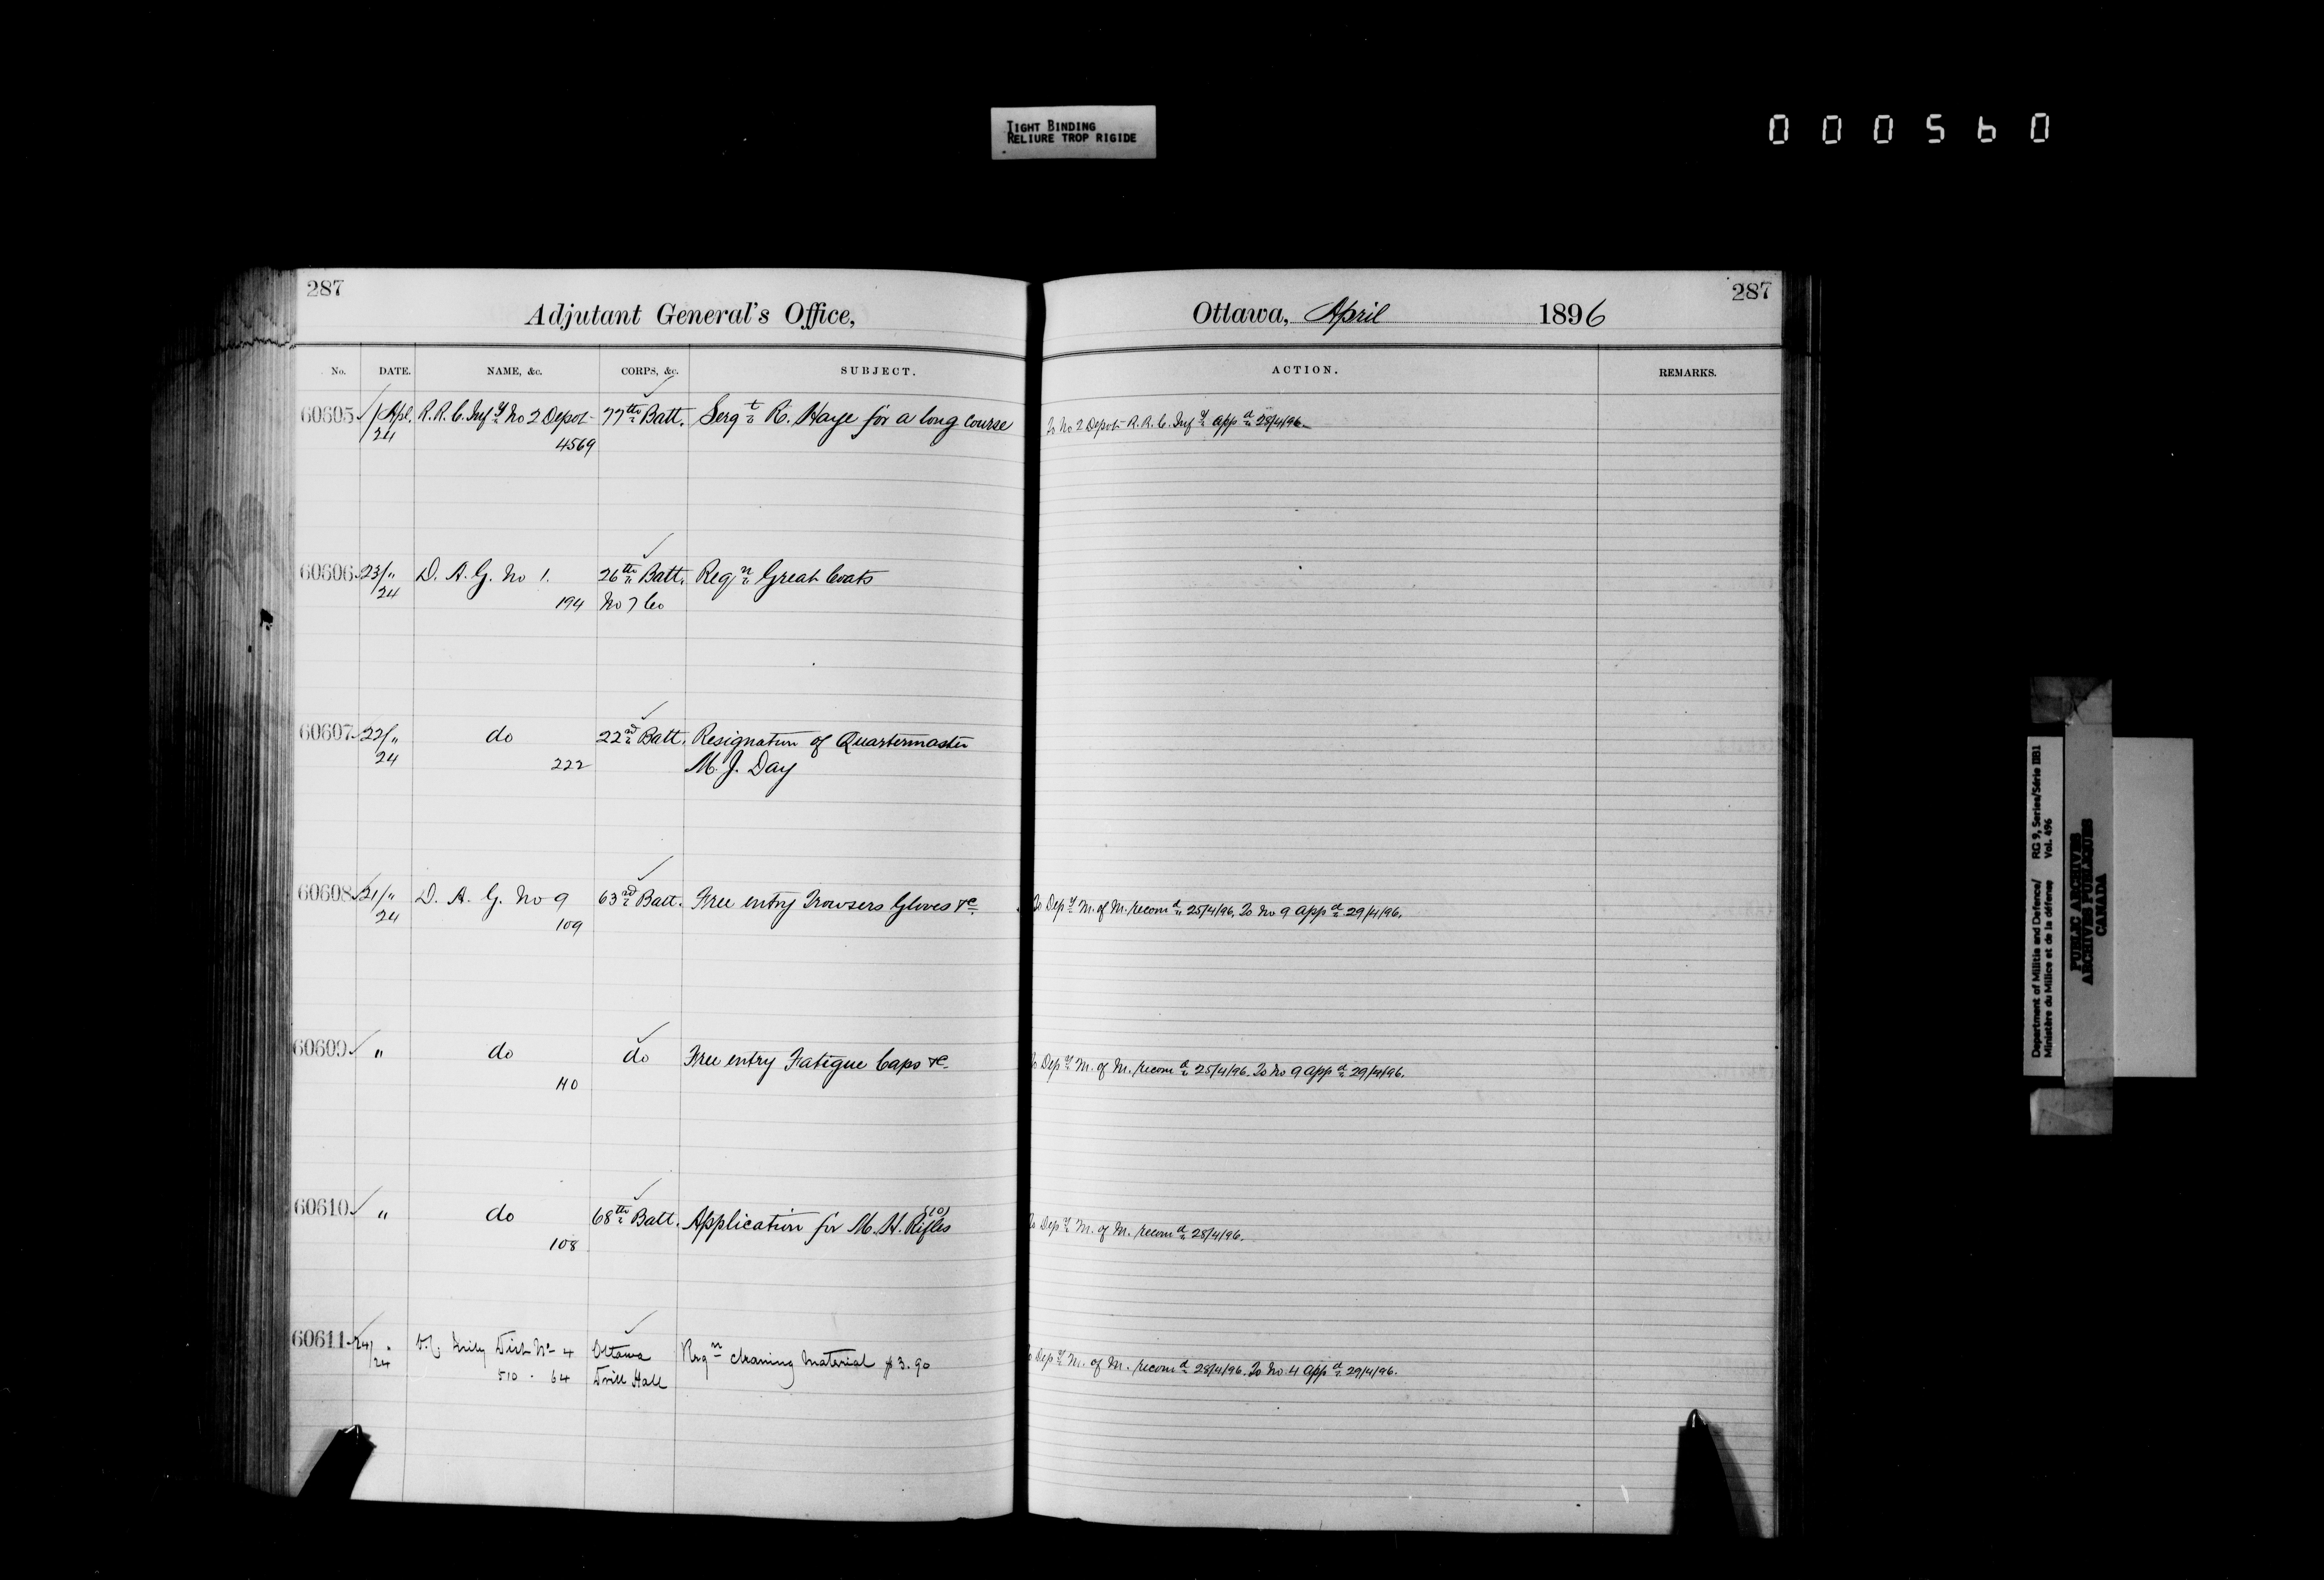 TIGHT BINDING
RELIURE TROP RIGIDE
000560
287
Adjutant General's Office,
No. DATE. NAME, &c. CORPS, &c. SUBJECT.
60605 /Apl. R.R.C. Inf.y No 2 Depot 77th Batt. Sergt R. Haye for a long course
24 4569
60606 23/" D. A. G. No 1. 26th Batt. Reqn Great Coats
24 194 No 7 Co
60607 22/" do 22nd Batt. Resignation of Quartermaster
24 222 M. J. Day
60608 21/" D. A. G. No 9 63rd Batt. Free entry Trowsers Gloves &c.
24 109
60609 " do do Free entry Fatigue Caps &c.
110
60610 " do 68th Batt. Application for M. H. Rifles (10)
108
60611 24/" Dist No 4 Ottawa Reqn cleaning material $3.90
24 510 . 64 Drill Hall
287
Ottawa, April 1896
ACTION. REMARKS.
To No 2 Depot R.R.C. Inf.y appd 28/4/96.
To Depy M. of M. recomd 25/4/96. To No 9 appd 29/4/96.
To Depy M. of M. recomd 25/4/96. To No 9 appd 29/4/96.
To Depy M. of M. recomd 28/4/96.
To Depy M. of M. recomd 28/4/96. To No 4 appd 29/4/96.
Department of Militia and Defence/ RG 9, Series/Série IIB1
Ministère du Milice et de la défense Vol. 496
PUBLIC ARCHIVES
ARCHIVES PUBLIQUES
CANADA